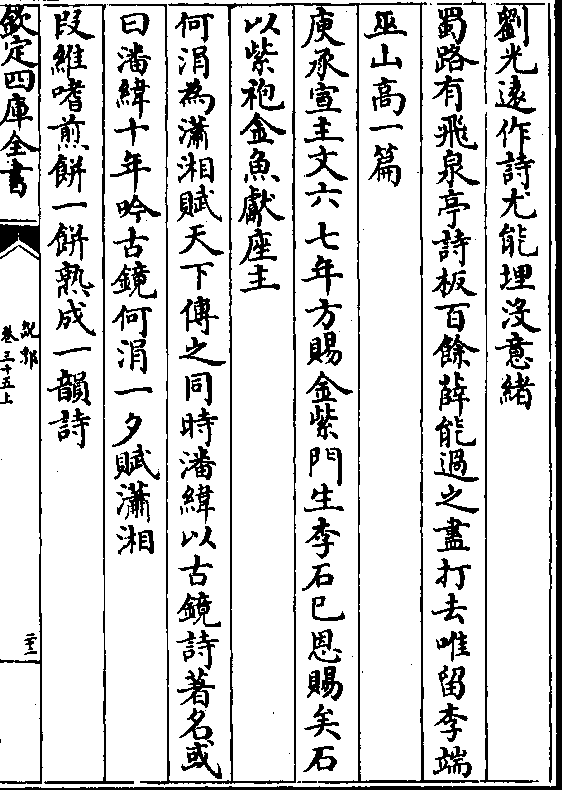 劉光遠作詩尤能埋沒意緒
蜀路有飛泉亭詩板百餘薛能過之盡打去唯留李端
巫山高一篇
庾承宣主文六七年方賜金紫門生李石已恩賜矣石
以紫袍金魚獻座主
何涓為瀟湘賦天下傳之同時潘緯以古鏡詩著名或
曰潘緯十年吟古鏡何涓一夕賦瀟湘
段維嗜煎餅一餅熟成一韻詩
欽定四庫全書
說郛
卷三十五上
二十二